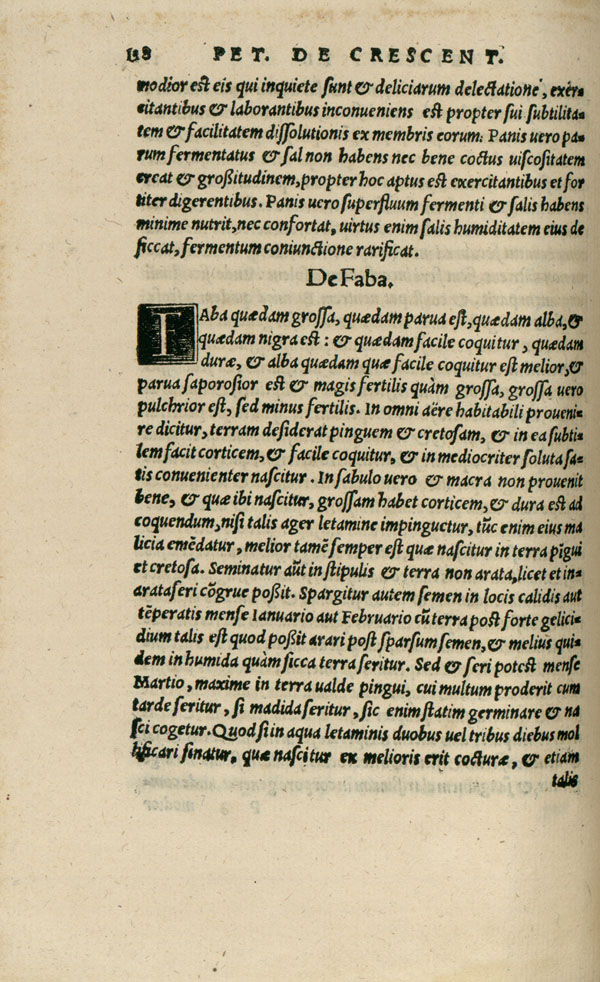 118 PET. DE CRESCENT.
modior est eis qui inquiete sunt & deliciarum delectatione, exer-
citantibus & laborantibus inconueniens est propter sui subtilita-
tem & facilitatem dissolutionis ex membris eorum. Panis uero pa-
rum fermentatus & sal non habens nec bene coctus uiscositatem
creat & großitudinem, propter hoc aptus est exercitantibus et for
titer digerentibus. Panis uero superfluum fermenti & salis habens
minime nutrit, nec confortat, uirtus enim salis humiditatem eius de
siccat, fermentum coniunctione rarificat.
De Faba.
FAba quædam grossa, quædam parua est, quædam alba, &
quædam nigra est: & quædam facile coquitur, quædam
duræ, & alba quædam quæ facile coquitur est melior, &
parua saporosior est & magis fertilis quàm grossa, grossa uero
pulchrior est, sed minus fertilis. In omni aëre habitabili proueni-
re dicitur, terram desiderat pinguem & cretosam, & in ea subti-
lem facit corticem, & facile coquitur, & in mediocriter soluta sa-
tis conuenienter nascitur. In sabulo uero & macra non prouenit
bene, & quæ ibi nascitur, grossam habet corticem, & dura est ad
coquendum, nisi talis ager letamine impinguetur, tũc enim eius ma
licia emẽdatur, melior tamẽ semper est quæ nascitur in terra pĩgui
et cretosa. Seminatur aũt in stipulis & terra non arata, licet et in-
arata seri cõgrue poßit. Spargitur autem semen in locis calidis aut
tẽperatis mense Ianuario aut Februario cũ terra post forte gelici-
dium talis est quod poßit arari post sparsum semen, & melius qui-
dem in humida quàm sicca terra seritur. Sed & seri potest mense
Martio, maxime in terra ualde pingui, cui multum proderit cum
tarde seritur, si madida seritur, sic enim statim germinare & na
sci cogetur. Quod si in aqua letaminis duobus uel tribus diebus mol
lificari sinatur, quæ nascitur ex melioris erit cocturæ, & etiam
talis